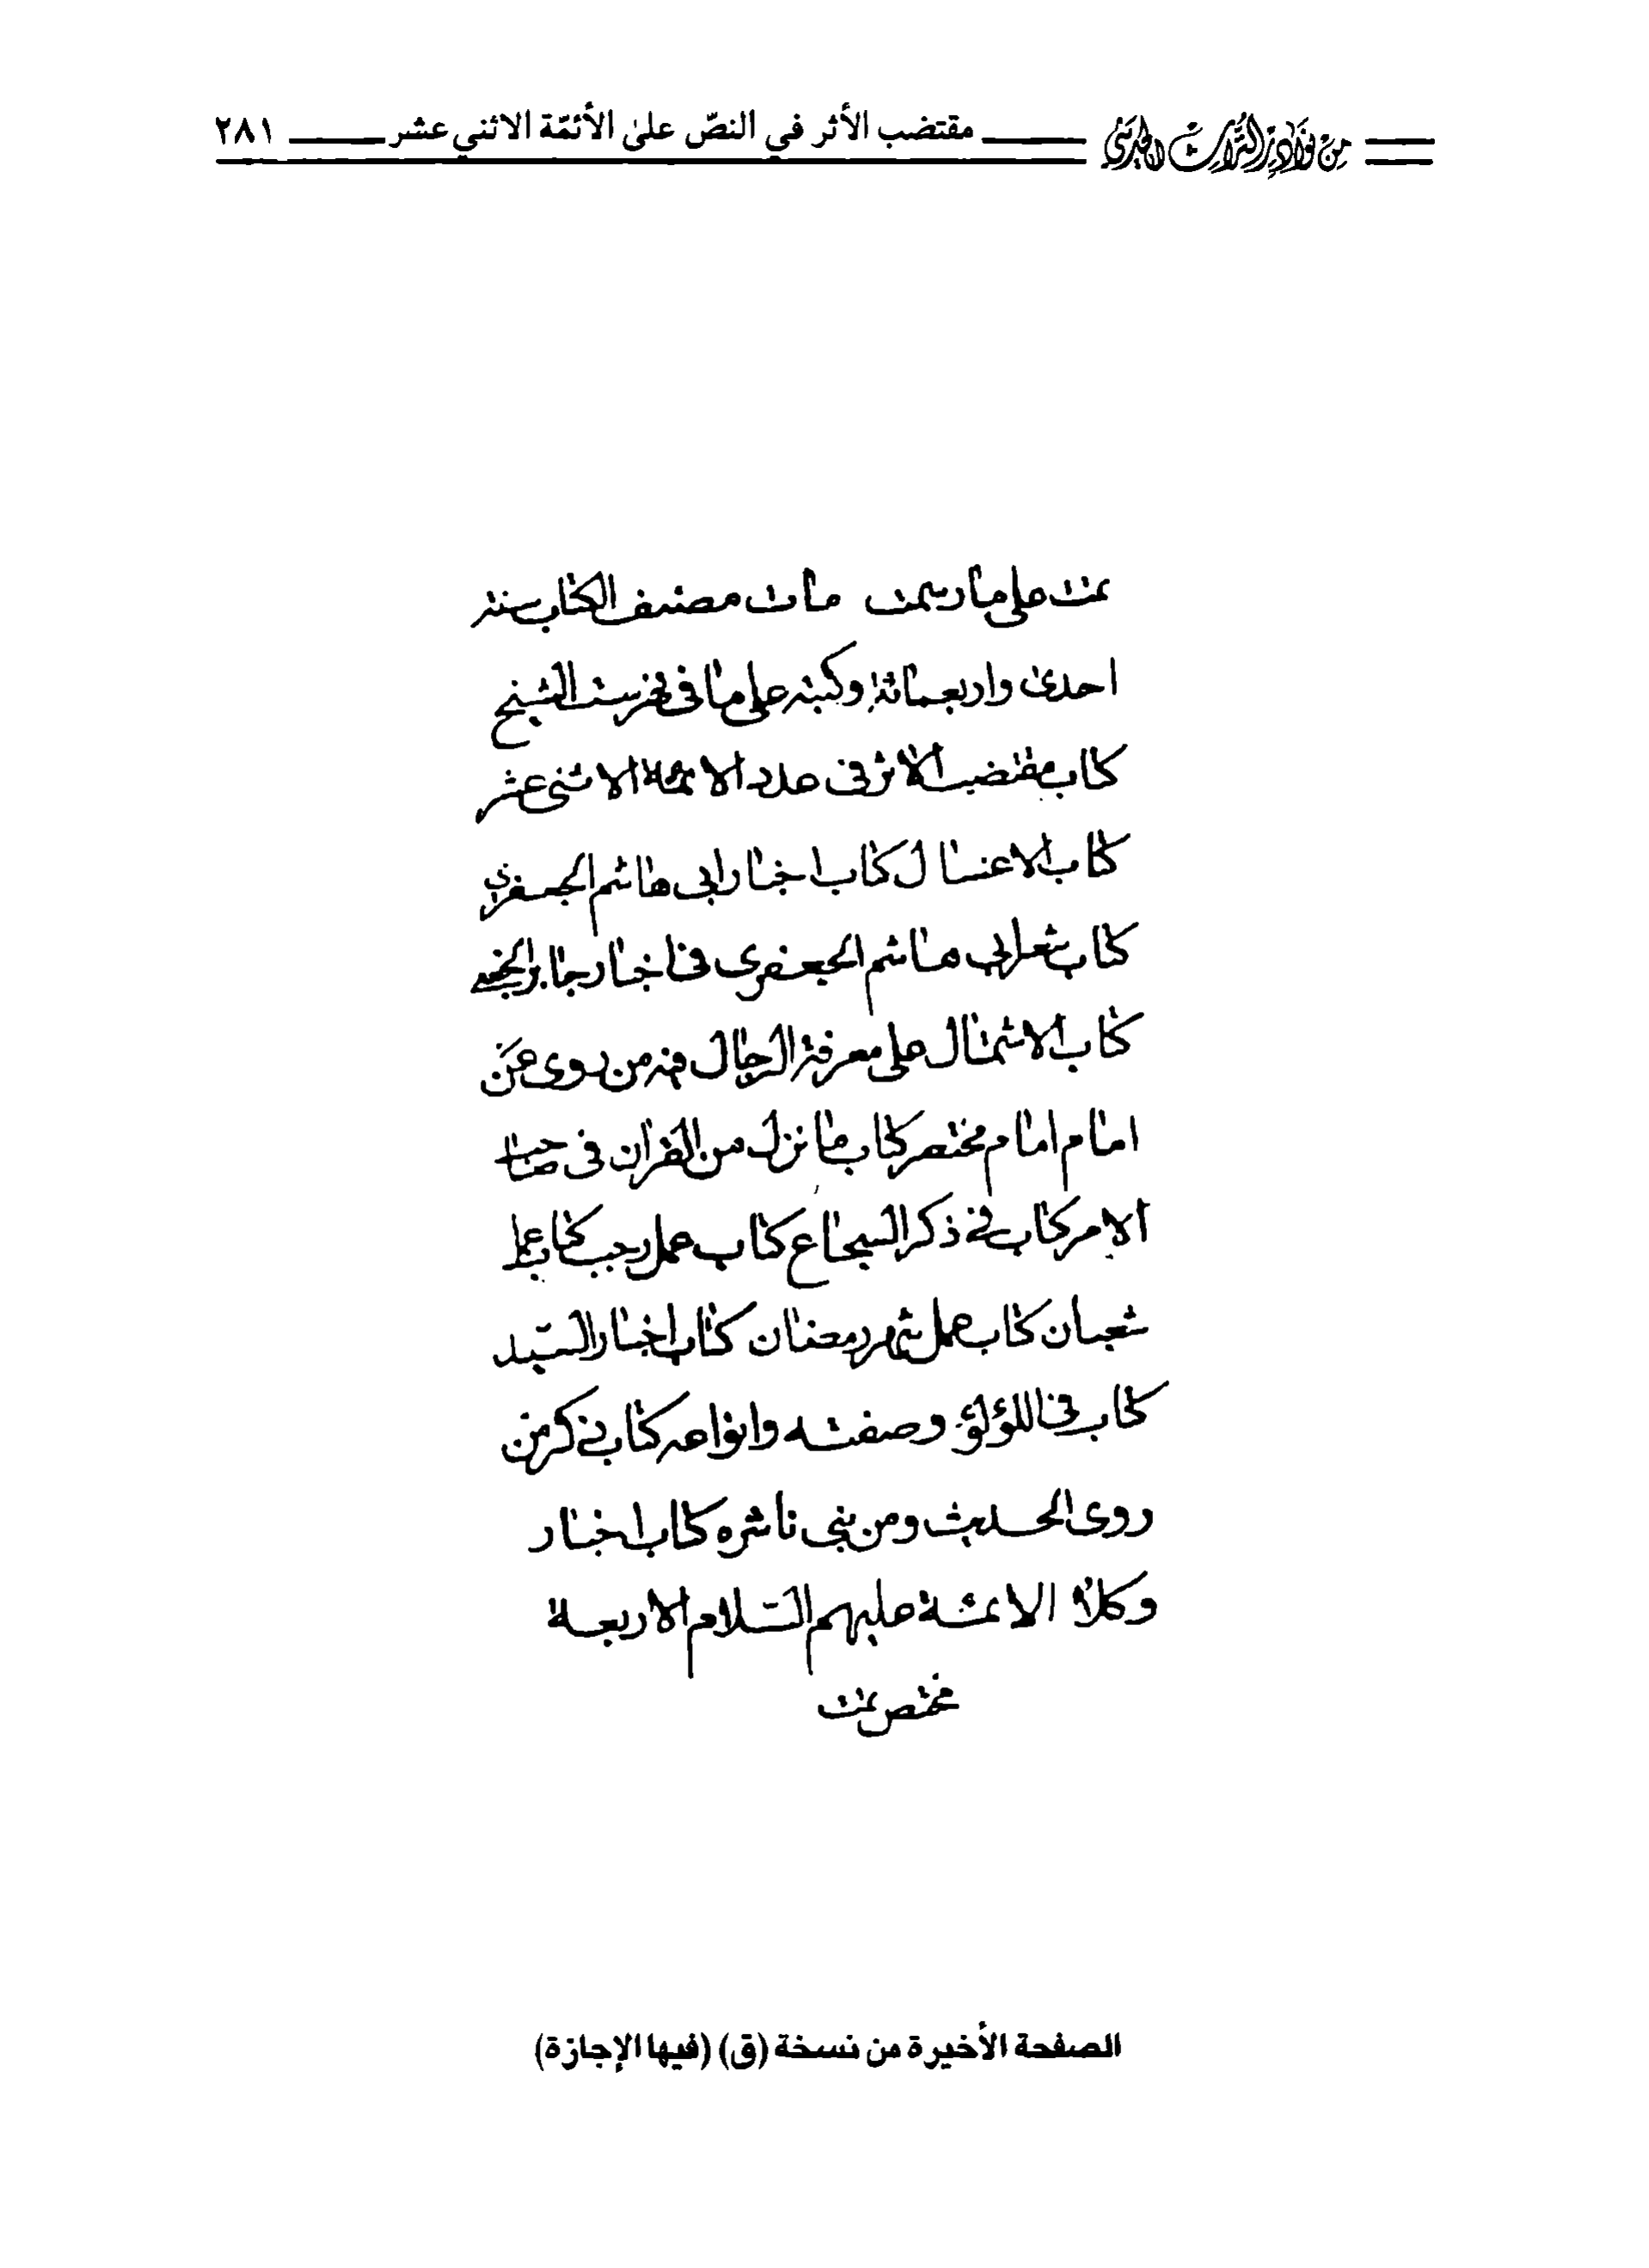 من نوادر التراث الحديثي مقتضب الأثر في النصّ على الأئمّة الاثني عشر ٢٨١
تمت على ما رسمت مات مصنف الكتاب سنة
احدى واربعمائة وكتبه على ما فى فهرست الشيخ
كتاب مقتضب الاثر فى عدد الائمة الاثنى عشر
كتاب الاغسال كتاب اخبار ابى هاشم الجعفرى
كتاب شعر ابى هاشم الجعفرى فى اخبار جابر الجعفى
كتاب الاشتمال على معرفة الرجال فيه من روى عن
امام امام مختصر كتاب ما نزل من القران فى صاحب
الامر كتاب فى ذكر الشجاع كتاب عمل رجب كتاب عمل
شعبان كتاب عمل شهر رمضان كتاب اخبار السيد
كتاب فى اللؤلؤ وصفته وانواعه كتاب ذكر من
روى الحديث ومن بنى ناشره كتاب اخبار
وكلاء الائمة عليهم السلام الاربعة
مختصر تمت
الصفحة الأخيرة من نسخة (ق) (فيها الإجازة)